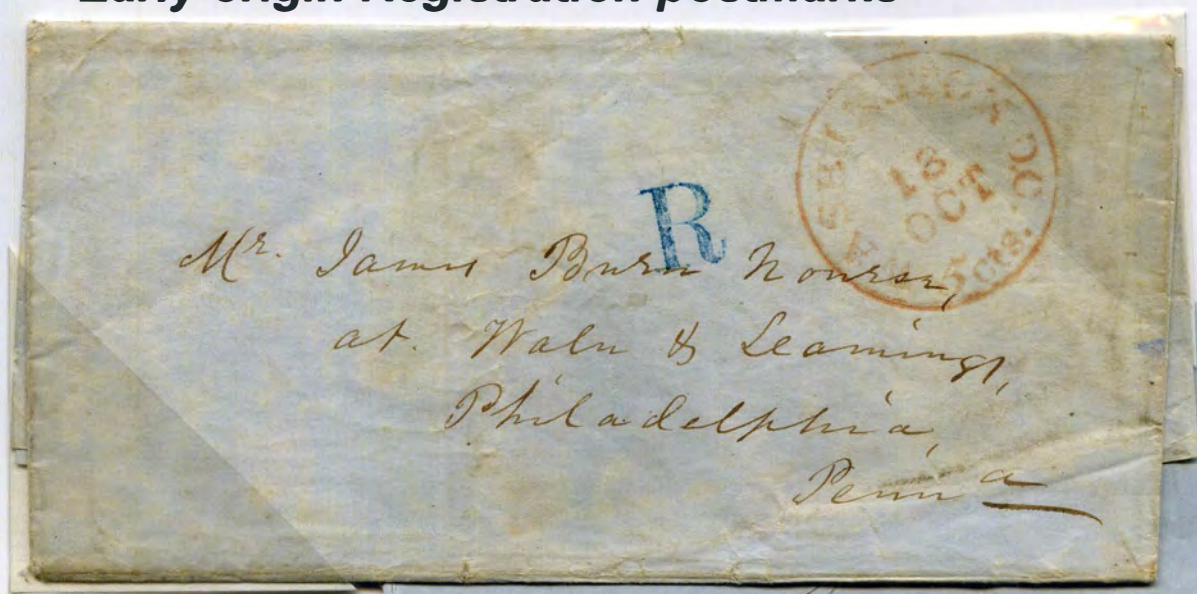 Early origin Registration postmarks
WASHINGTON D.C.
18
OCT
5 cts.
R
Mr. James Burn Nourse,
at Waln & Leamings,
Philadelphia,
Penna